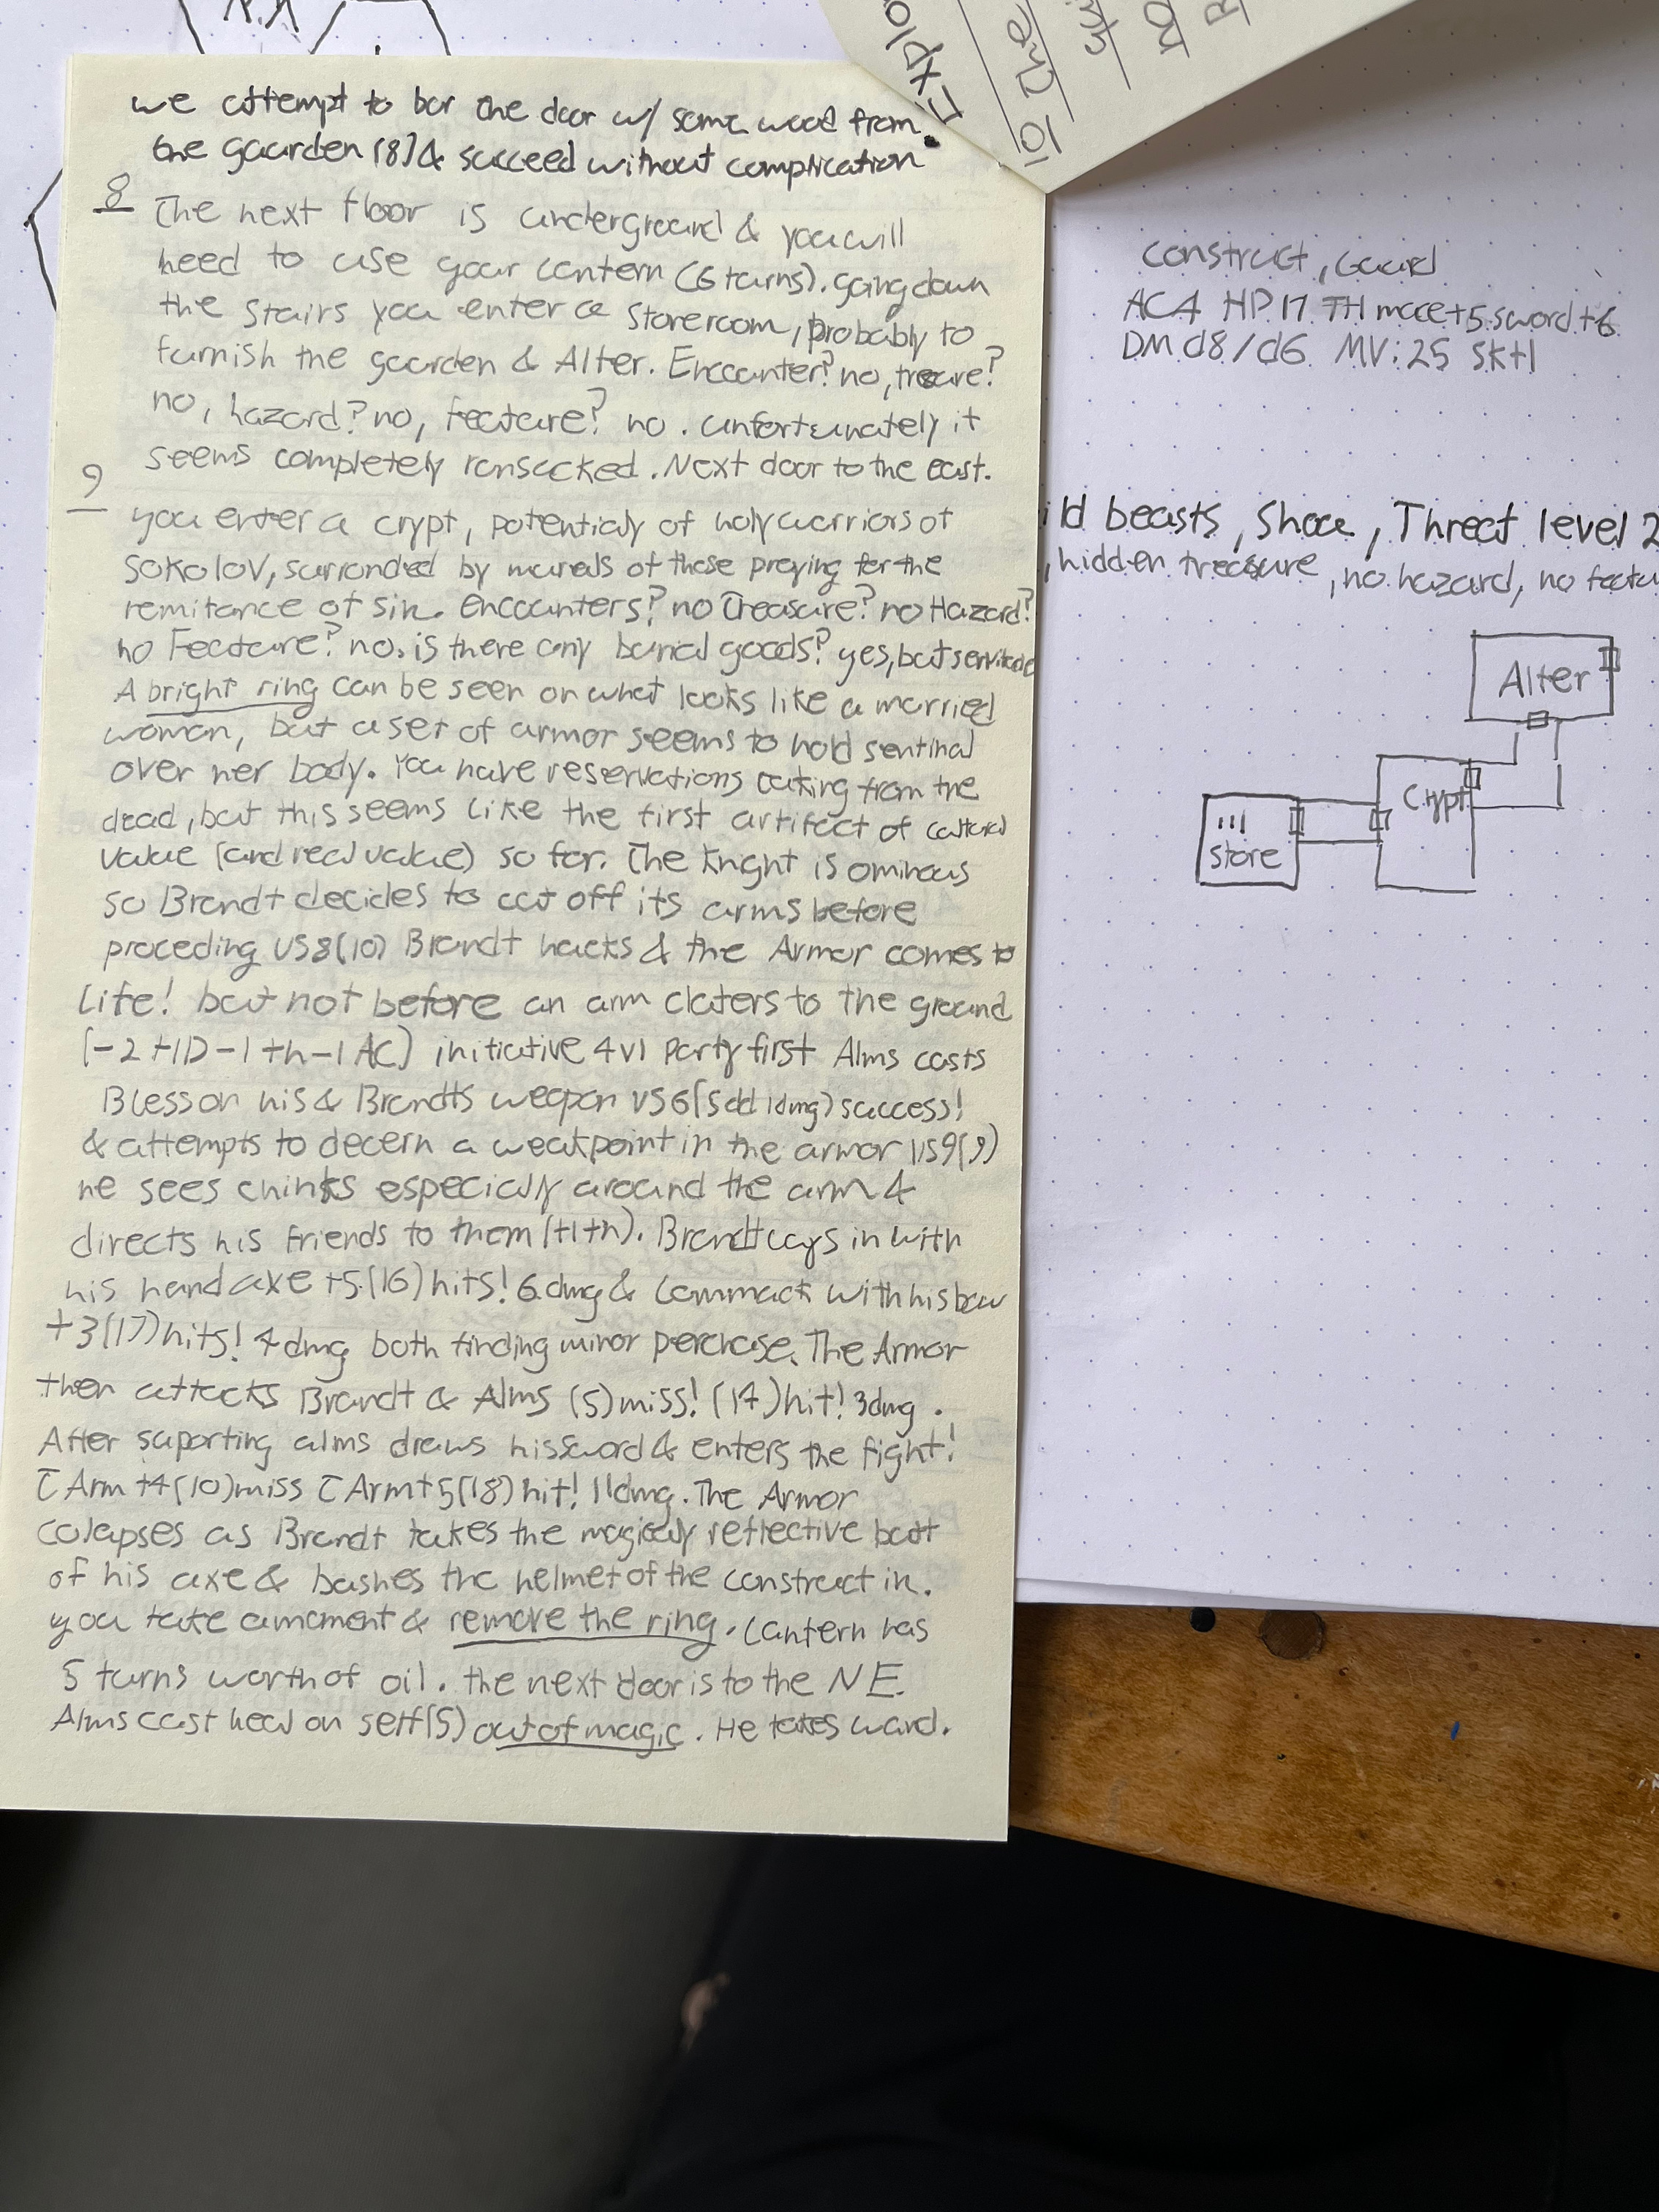 we attempt to bar the door w/ some wood from
the gaarden (8) & succeed without complication
8
The next floor is underground & you will
need to use your lantern (6 turns). going down
the stairs you enter a storeroom, probably to
furnish the gaarden & Alter. Encounter? no, tresure?
no, hazard? no, feature? no. unfortunately it
seems completely ransacked. Next door to the east.
9
you enter a crypt, potentialy of holy warriors of
SOKOLOV, surronded by murals of those preying for the
remitance of sin. Encounters? no Treasure? no Hazard?
no Feature? no. is there any burial goods? yes, but
A bright ring can be seen on what looks like a married
woman, but a set of armor seems to hold sentinal
over her body. You have reservations taking from the
dead, but this seems like the first artifact of cultural
value (and real value) so far. The Knght is ominous
so Brandt decides to cut off its arms before
proceding VS8(10) Brandt hacks & the Armor comes to
life! but not before an arm claters to the ground
(-2 HD -1 th -1 AC) initiative 4v1 Party first Alms casts
Bless on his & Brandts weapon VS6(5dd 1dmg) success!
& attempts to decern a weakpoint in the armor VS9(9)
he sees chinks especialy around the arm &
directs his friends to them (+1 th). Brandt lays in with
his hand axe +5 (16) hits! 6 dmg & Cammack with his bow
+3(17) hits! 4 dmg both finding minor perchase. The Armor
then attacks Brandt & Alms (5) miss! (14) hit! 3dmg.
After suporting alms draws his sword & enters the fight!
Arm +4 (10) miss Arm +5 (18) hit! 11dmg. The Armor
colapses as Brandt takes the magicaly reflective butt
of his axe & bashes the helmet of the construct in.
you take amoment & remove the ring. Lantern has
5 turns worth of oil. the next door is to the NE.
Alms cast heal on self (5) out of magic. He takes ward.
Explo
10 The
construct, Guard
AC4 HP17 TH mace+5 sword+6
DM d8/d6 MV: 25 SK+1
ld beasts, Shoce, Threat level 2
, hidden treasure, no hazard, no featu
Alter
Crypt
store